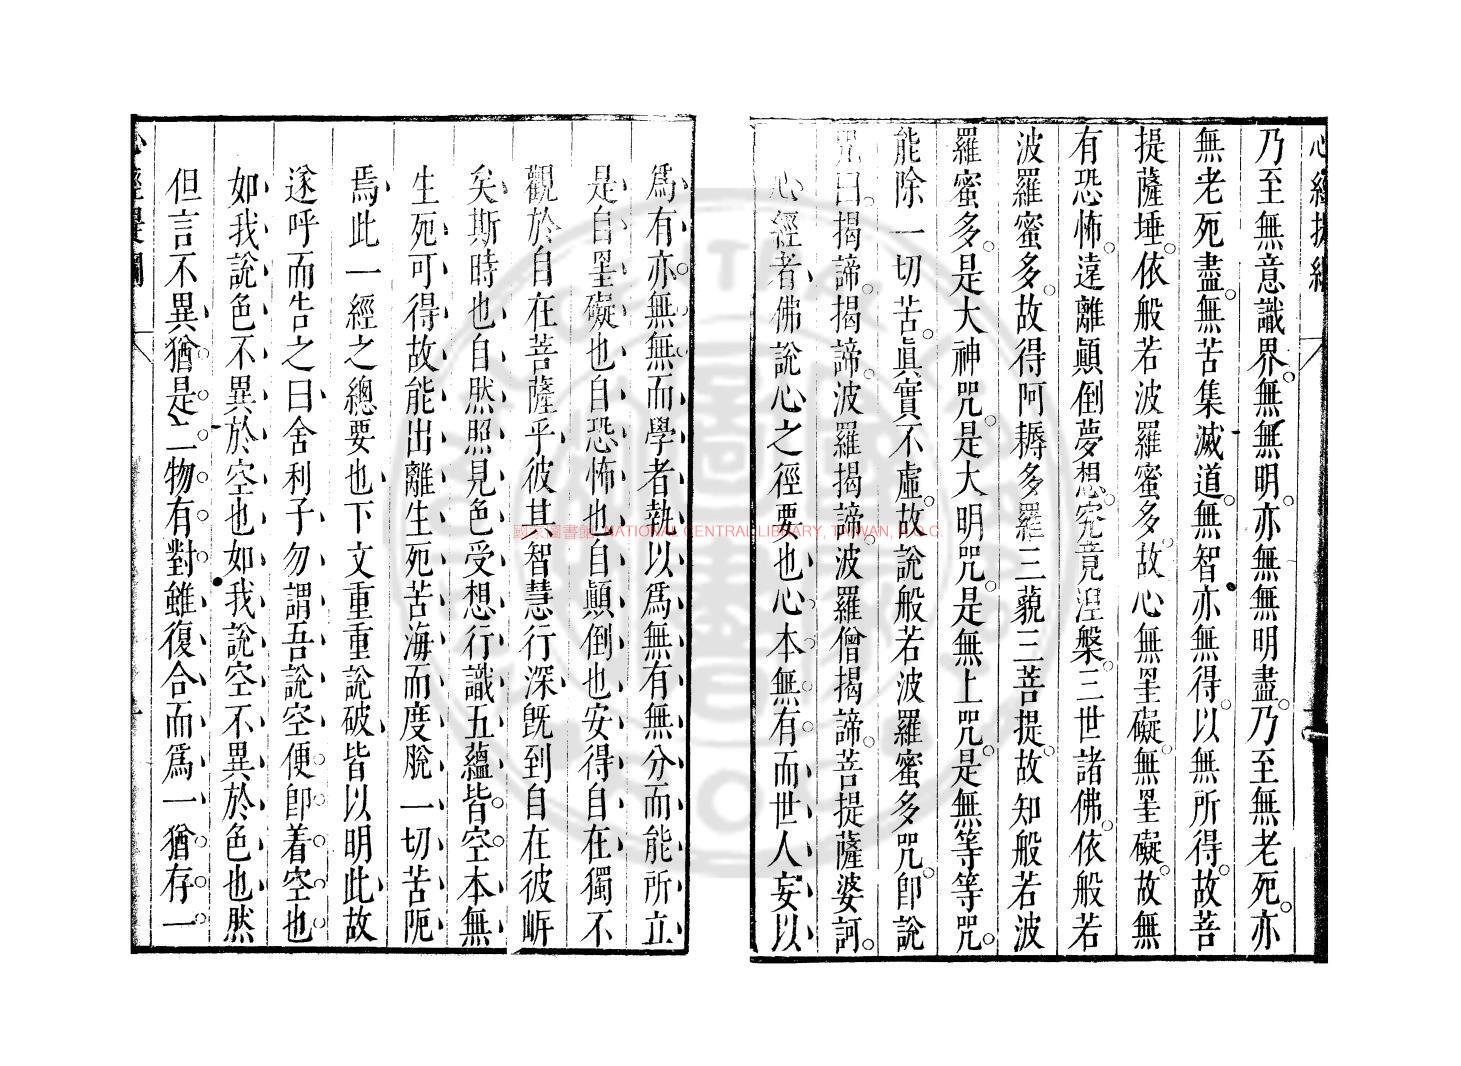 心經提綱
乃至無意識界。無無明。亦無無明盡。乃至無老死。亦
無老死盡。無苦集滅道。無智亦無得。以無所得。故菩
提薩埵。依般若波羅蜜多。故心無罣礙。無罣礙。故無
有恐怖。遠離顚倒夢想。究竟涅槃。三世諸佛。依般若
波羅蜜多。故得阿耨多羅三藐三菩提。故知般若波
羅蜜多。是大神咒。是大明咒。是無上咒。是無等等咒。
能除一切苦。眞實不虛。故說般若波羅蜜多咒。卽說
咒曰。揭諦。揭諦。波羅揭諦。波羅僧揭諦。菩提薩婆訶。
心經者佛說心之徑要也心本無有而世人妄以
爲有亦無無而學者執以爲無有無分而能所立
是自罣礙也自恐怖也自顚倒也安得自在獨不
觀於自在菩薩乎彼其智慧行深旣到自在彼岍
矣斯時也自然照見色受想行識五蘊皆空本無
生死可得故能出離生死苦海而度脫一切苦阨
焉此一經之總要也下文重重說破皆以明此故
遂呼而告之曰舍利子勿謂吾說空便卽着空也
如我說色不異於空也如我說空不異於色也然
但言不異猶是二物有對雖復合而爲一猶存一
心經提綱
一
國家圖書館 NATIONAL CENTRAL LIBRARY, TAIWAN, R.O.C.